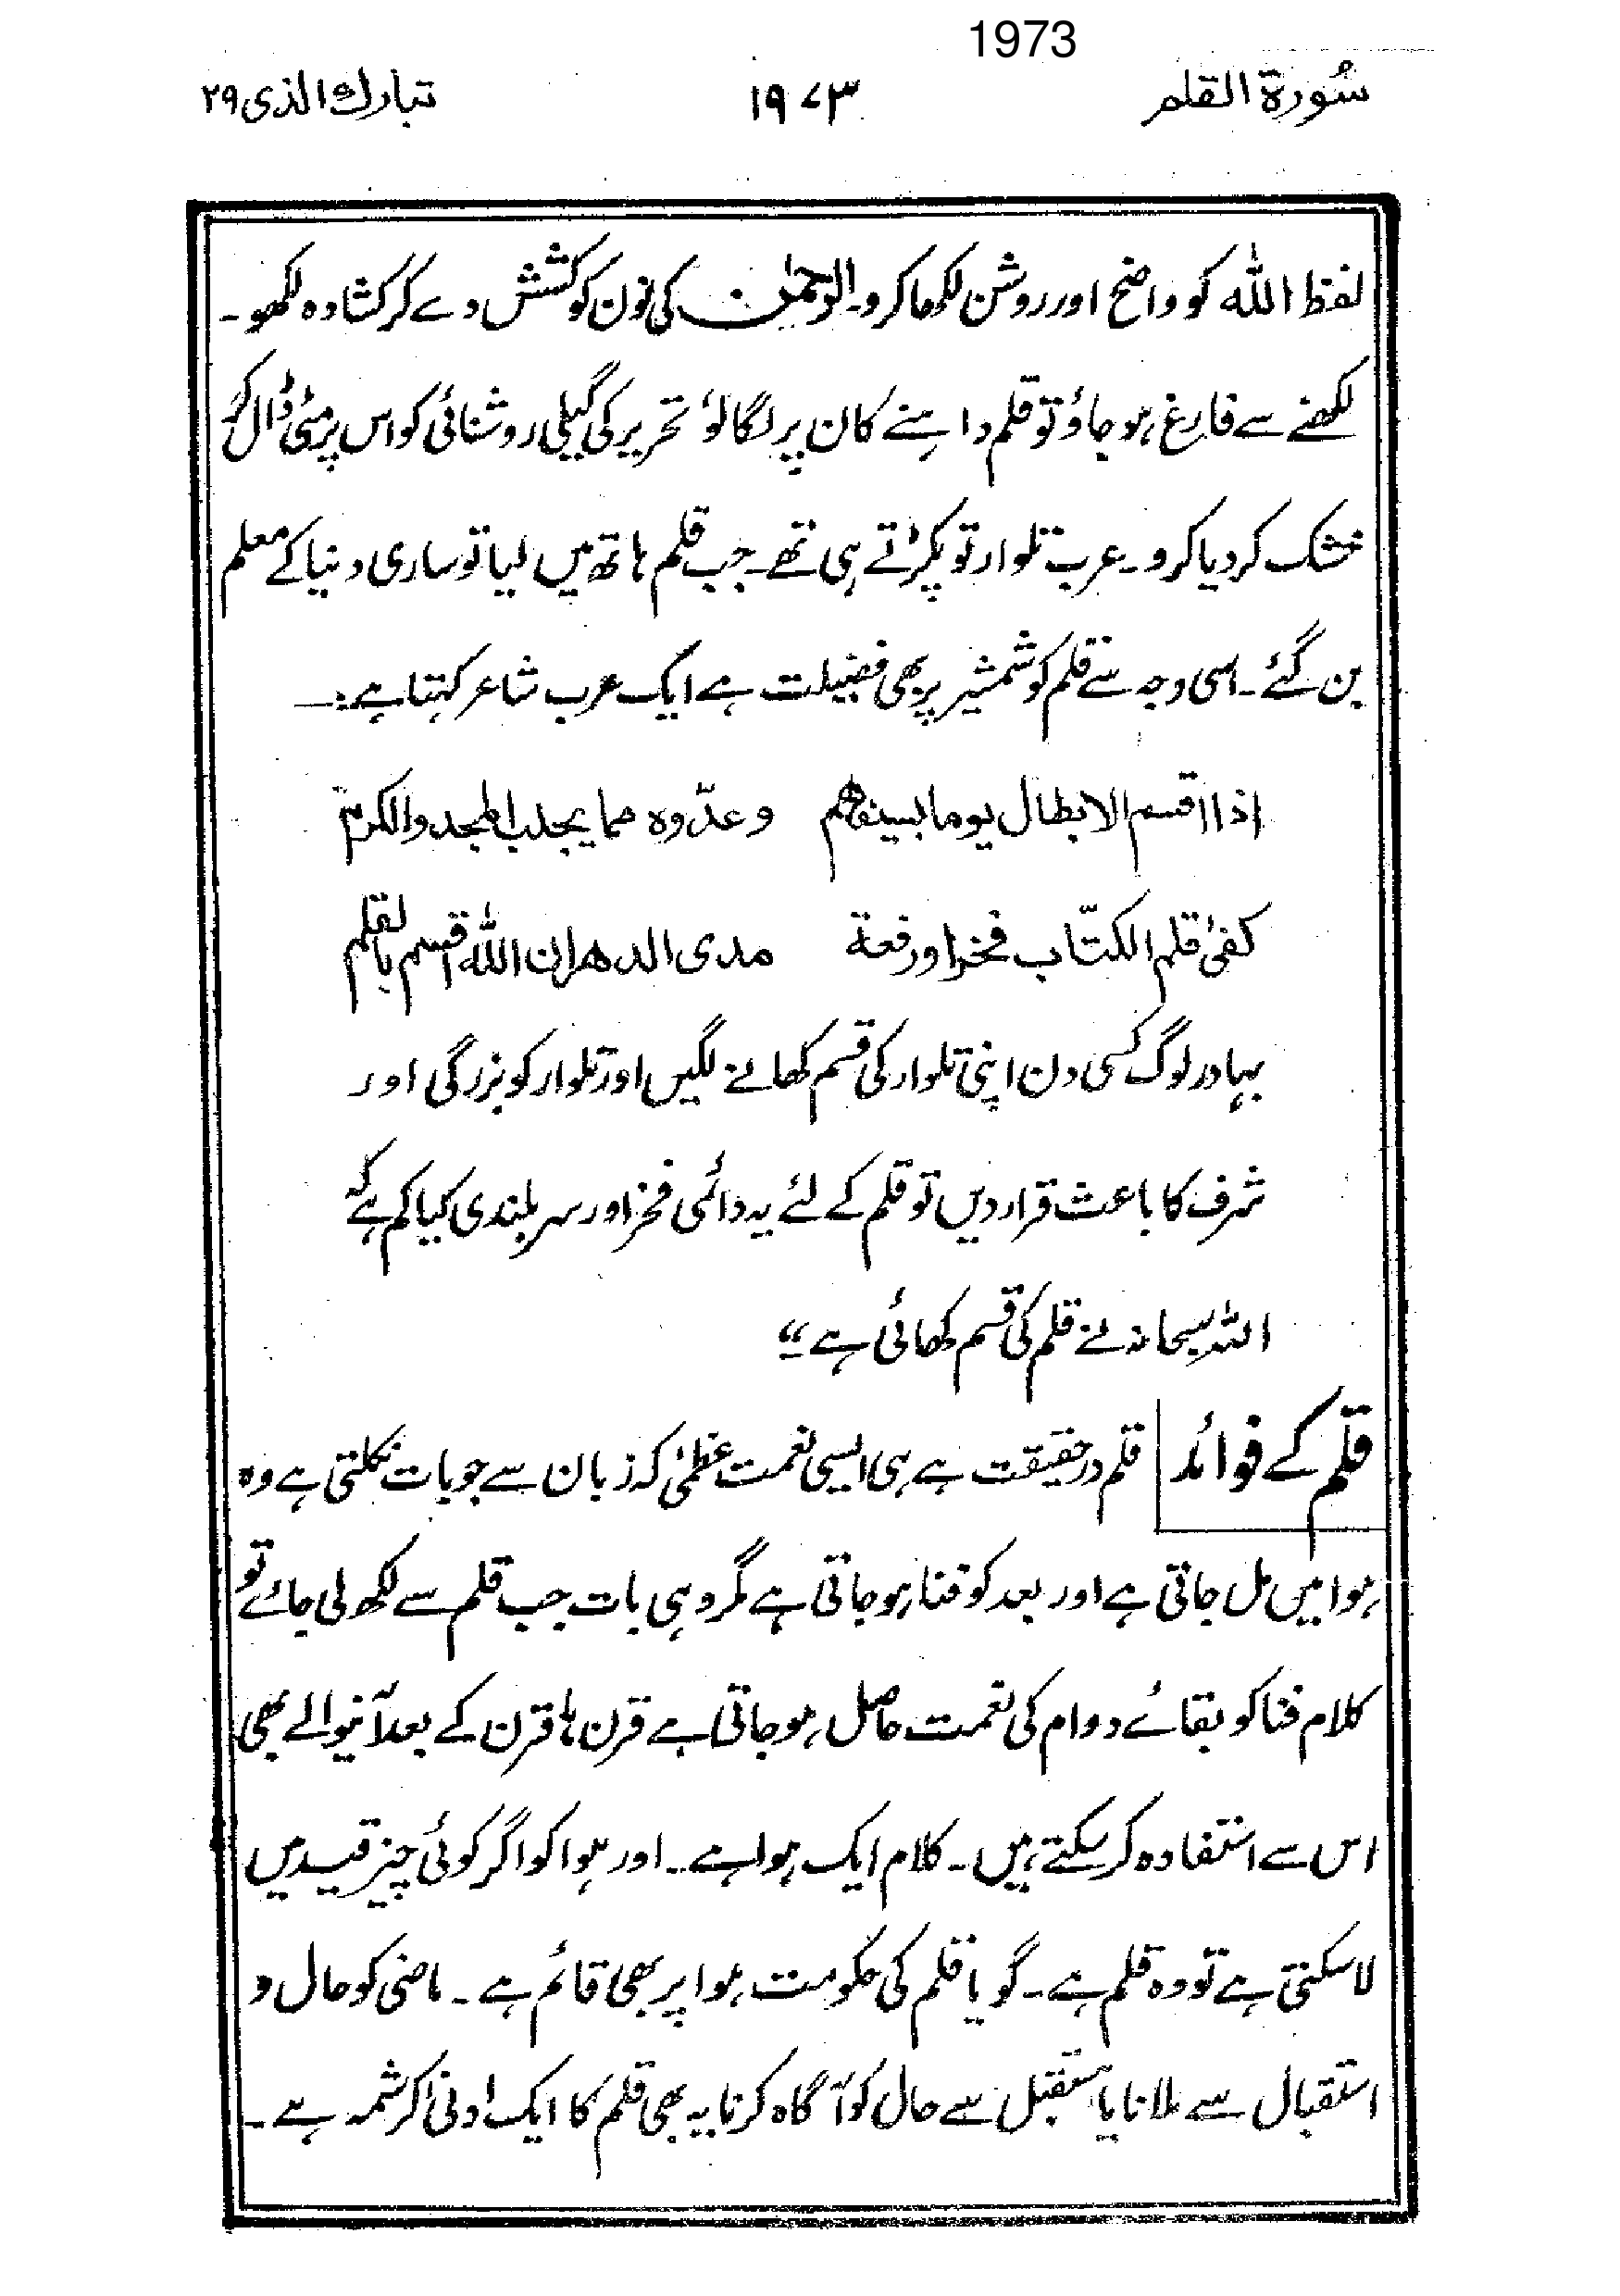 1973
سُورة القلم ۱۹۷۳ تبارك الذی ۲۹
لفظ اللہ کو واضح اور روشن لکھا کرو۔ الرحمٰن کی نون کو کشش دے کر کشادہ لکھو۔
لکھنے سے فارغ ہو جاؤ تو قلم داہنے کان پر لگا لو تحریر کی گیلی روشنائی کو اس پر مٹی ڈال کر
خشک کر دیا کرو۔ عرب تلوار تو پکڑتے ہی تھے۔ جب قلم ہاتھ میں لیا تو ساری دنیا کے معلم
بن گئے۔ اسی وجہ سے قلم کو شمشیر پر بھی فضیلت ہے ایک عرب شاعر کہتا ہے:۔
اذا اقسم الابطال یوما بسیفھم وعدّوہ مما یجلب المجد والکرم
کفیٰ قلم الکتّاب فخرا ورفعة مدی الدھر ان اللہ اقسم بالقلم
بہادر لوگ کسی دن اپنی تلوار کی قسم کھانے لگیں اور تلوار کو بزرگی اور
شرف کا باعث قرار دیں تو قلم کے لئے یہ دائمی فخر اور سربلندی کیا کم ہے کہ
اللہ سبحانہ نے قلم کی قسم کھائی ہے‘‘
قلم کے فوائد قلم درحقیقت ہے ہی ایسی نعمت عظمیٰ کہ زبان سے جو بات نکلتی ہے وہ
ہوا میں مل جاتی ہے اور بعد کو فنا ہو جاتی ہے مگر وہی بات جب قلم سے لکھ لی جائے تو
کلام فنا کو بقائے دوام کی نعمت حاصل ہو جاتی ہے قرن ہا قرن کے بعد آنیوالے بھی
اس سے استفادہ کر سکتے ہیں۔ کلام ایک ہوا ہے۔ اور ہوا کو اگر کوئی چیز قید میں
لا سکتی ہے تو وہ قلم ہے۔ گویا قلم کی حکومت ہوا پر بھی قائم ہے۔ ماضی کو حال و
استقبال سے ملانا یا مستقبل سے حال کو آگاہ کرنا یہ بھی قلم کا ایک ادنیٰ کرشمہ ہے۔